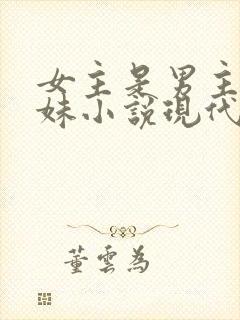 女主是男主
妹小說現代
董雲為